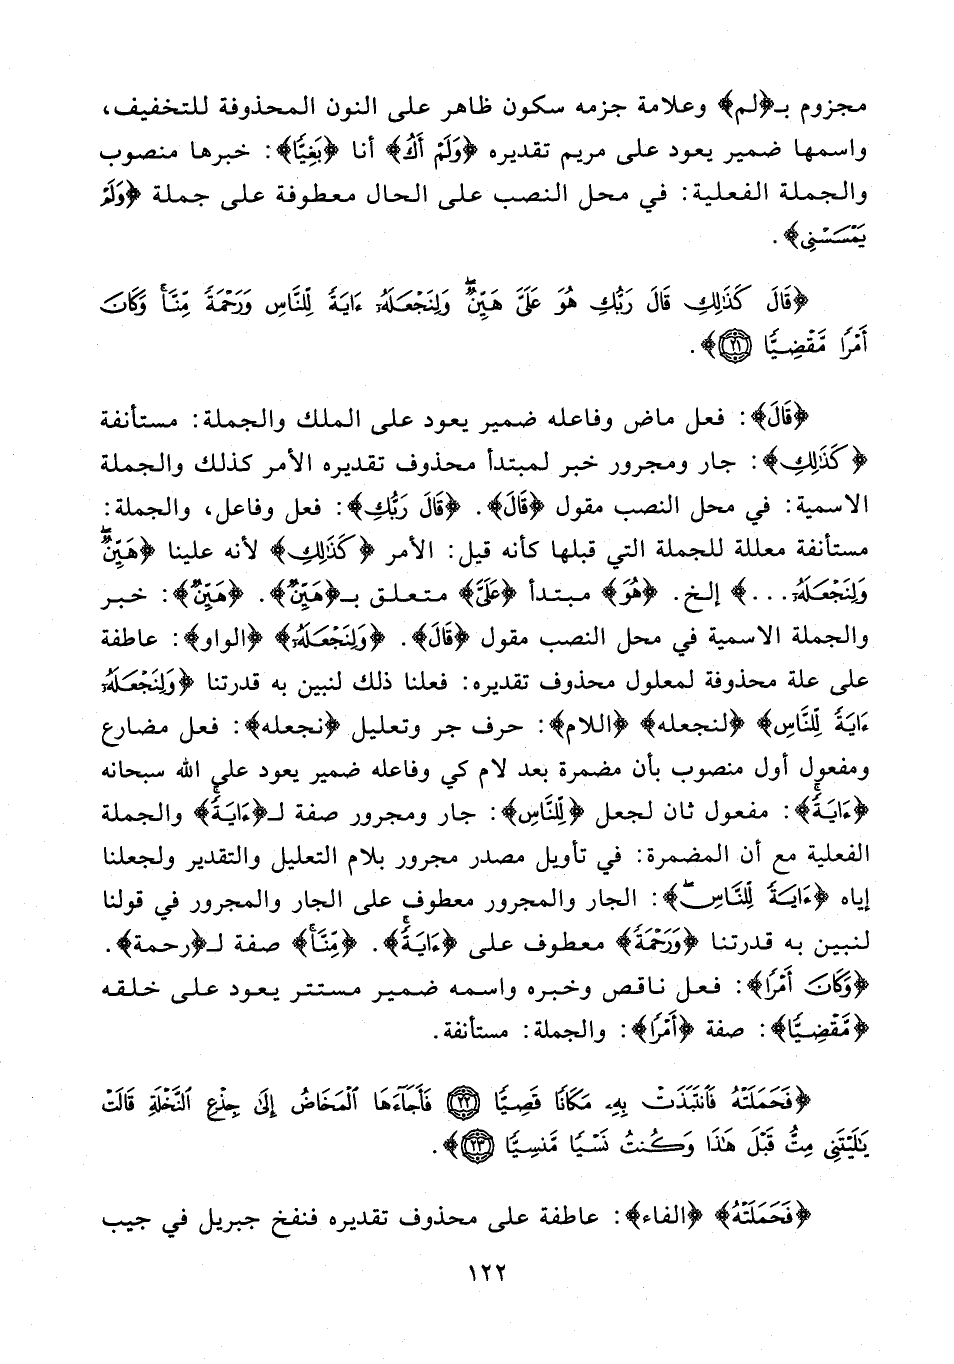 مجزوم بـ﴿لم﴾ وعلامة جزمه سكون ظاهر على النون المحذوفة للتخفيف،
واسمها ضمير يعود على مريم تقديره ﴿وَلَمْ أَكُ﴾ أنا ﴿بَغِيًّا﴾: خبرها منصوب
والجملة الفعلية: في محل النصب على الحال معطوفة على جملة ﴿وَلَمْ
يَمْسَسْنِى﴾.
﴿قَالَ كَذَٰلِكِ قَالَ رَبُّكِ هُوَ عَلَىَّ هَيِّنٌۖ وَلِنَجْعَلَهُۥٓ ءَايَةً لِّلنَّاسِ وَرَحْمَةً مِّنَّاۚ وَكَانَ
أَمْرًا مَّقْضِيًّا ٢١﴾.
﴿قَالَ﴾: فعل ماض وفاعله ضمير يعود على الملك والجملة: مستأنفة
﴿كَذَٰلِكِ﴾: جار ومجرور خبر لمبتدأ محذوف تقديره الأمر كذلك والجملة
الاسمية: في محل النصب مقول ﴿قَالَ﴾. ﴿قَالَ رَبُّكِ﴾: فعل وفاعل، والجملة:
مستأنفة معللة للجملة التي قبلها كأنه قيل: الأمر ﴿كَذَٰلِكِ﴾ لأنه علينا ﴿هَيِّنٌۖ
وَلِنَجْعَلَهُۥٓ...﴾ إلخ. ﴿هُوَ﴾ مبتدأ ﴿عَلَىَّ﴾ متعلق بـ﴿هَيِّنٌ﴾. ﴿هَيِّنٌ﴾: خبر
والجملة الاسمية في محل النصب مقول ﴿قَالَ﴾. ﴿وَلِنَجْعَلَهُۥٓ﴾ ﴿الواو﴾: عاطفة
على علة محذوفة لمعلول محذوف تقديره: فعلنا ذلك لنبين به قدرتنا ﴿وَلِنَجْعَلَهُۥٓ
ءَايَةً لِّلنَّاسِ﴾ ﴿لنجعله﴾ ﴿اللام﴾: حرف جر وتعليل ﴿نجعله﴾: فعل مضارع
ومفعول أول منصوب بأن مضمرة بعد لام كي وفاعله ضمير يعود على الله سبحانه
﴿ءَايَةً﴾: مفعول ثان لجعل ﴿لِّلنَّاسِ﴾: جار ومجرور صفة لـ﴿ءَايَةً﴾ والجملة
الفعلية مع أن المضمرة: في تأويل مصدر مجرور بلام التعليل والتقدير ولجعلنا
إياه ﴿ءَايَةً لِّلنَّاسِ﴾: الجار والمجرور معطوف على الجار والمجرور في قولنا
لنبين به قدرتنا ﴿وَرَحْمَةً﴾ معطوف على ﴿ءَايَةً﴾. ﴿مِّنَّا﴾ صفة لـ﴿رحمة﴾.
﴿وَكَانَ أَمْرًا﴾: فعل ناقص وخبره واسمه ضمير مستتر يعود على خلقه
﴿مَّقْضِيًّا﴾: صفة ﴿أَمْرًا﴾: والجملة: مستأنفة.
﴿فَحَمَلَتْهُ فَٱنتَبَذَتْ بِهِۦ مَكَانًا قَصِيًّا ٢٢ فَأَجَآءَهَا ٱلْمَخَاضُ إِلَىٰ جِذْعِ ٱلنَّخْلَةِ قَالَتْ
يَٰلَيْتَنِى مِتُّ قَبْلَ هَٰذَا وَكُنتُ نَسْيًا مَّنسِيًّا ٢٣﴾.
﴿فَحَمَلَتْهُ﴾ ﴿الفاء﴾: عاطفة على محذوف تقديره فنفخ جبريل في جيب
١٢٢